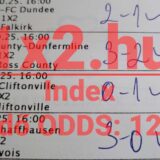 -FC Dundee
1X2
Falkirk 2-1-
25. 16:00
County-Dunfermline
X2 3-2-
Ross County
0.25. 16:00
Cliftonville
1X2 0-1-
Cliftonville
25. 16:00
chaffhausen
X2 3-0
vois
2.hu
Index
ODDS: 12